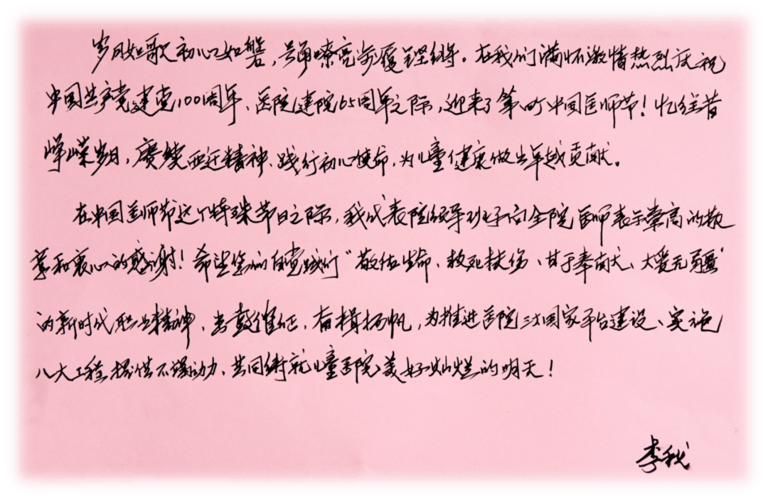 岁月如歌初心如磐，号角嘹亮步履铿锵。在我们满怀激情热烈庆祝
中国共产党建党100周年、医院建院65周年之际，迎来了第四个中国医师节！忆往昔
峥嵘岁月，赓续西迁精神、践行初心使命，为儿童健康做出卓越贡献。
在中国医师节这个特殊节日之际，我代表院领导班子向全院医师表示崇高的敬
意和衷心的感谢！希望您们自觉践行“敬佑生命、救死扶伤、甘于奉献、大爱无疆”
的新时代职业精神，击鼓催征、奋楫扬帆，为推进医院三大国家平台建设、实施
八大工程提供不竭动力、共同铸就儿童医院美好灿烂的明天！
李秋